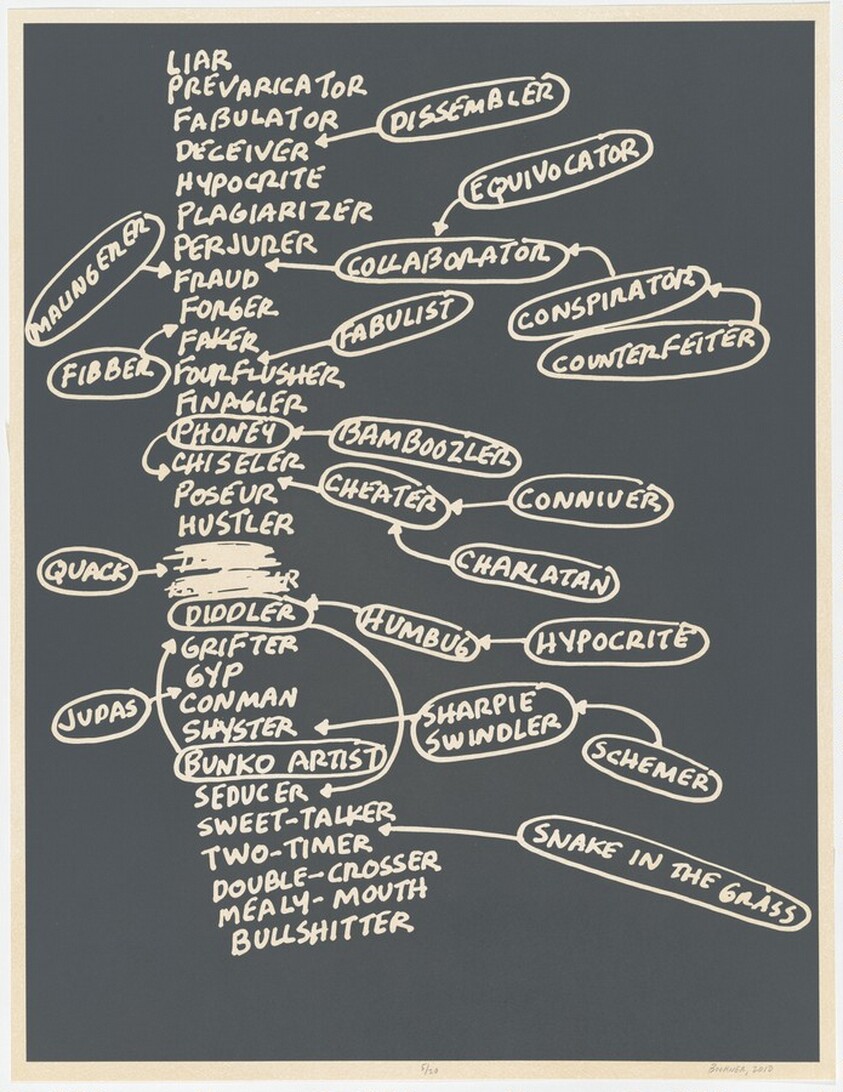 LIAR
PREVARICATOR
FABULATOR
DISSEMBLER
DECEIVER
HYPOCRITE
EQUIVOCATOR
PLAGIARIZER
PERJURER
COLLABORATOR
MALINGERER
FRAUD
CONSPIRATOR
FORGER
FABULIST
FAKER
COUNTERFEITER
FIBBER
FOURFLUSHER
FINAGLER
PHONEY
BAMBOOZLER
CHISELER
POSEUR
CHEATER
CONNIVER
HUSTLER
QUACK
CHARLATAN
DIDDLER
HUMBUG
HYPOCRITE
GRIFTER
GYP
CONMAN
JUDAS
SHYSTER
SHARPIE
SWINDLER
BUNKO ARTIST
SCHEMER
SEDUCER
SWEET-TALKER
TWO-TIMER
SNAKE IN THE GRASS
DOUBLE-CROSSER
MEALY-MOUTH
BULLSHITTER
5/20
Bochner, 2010